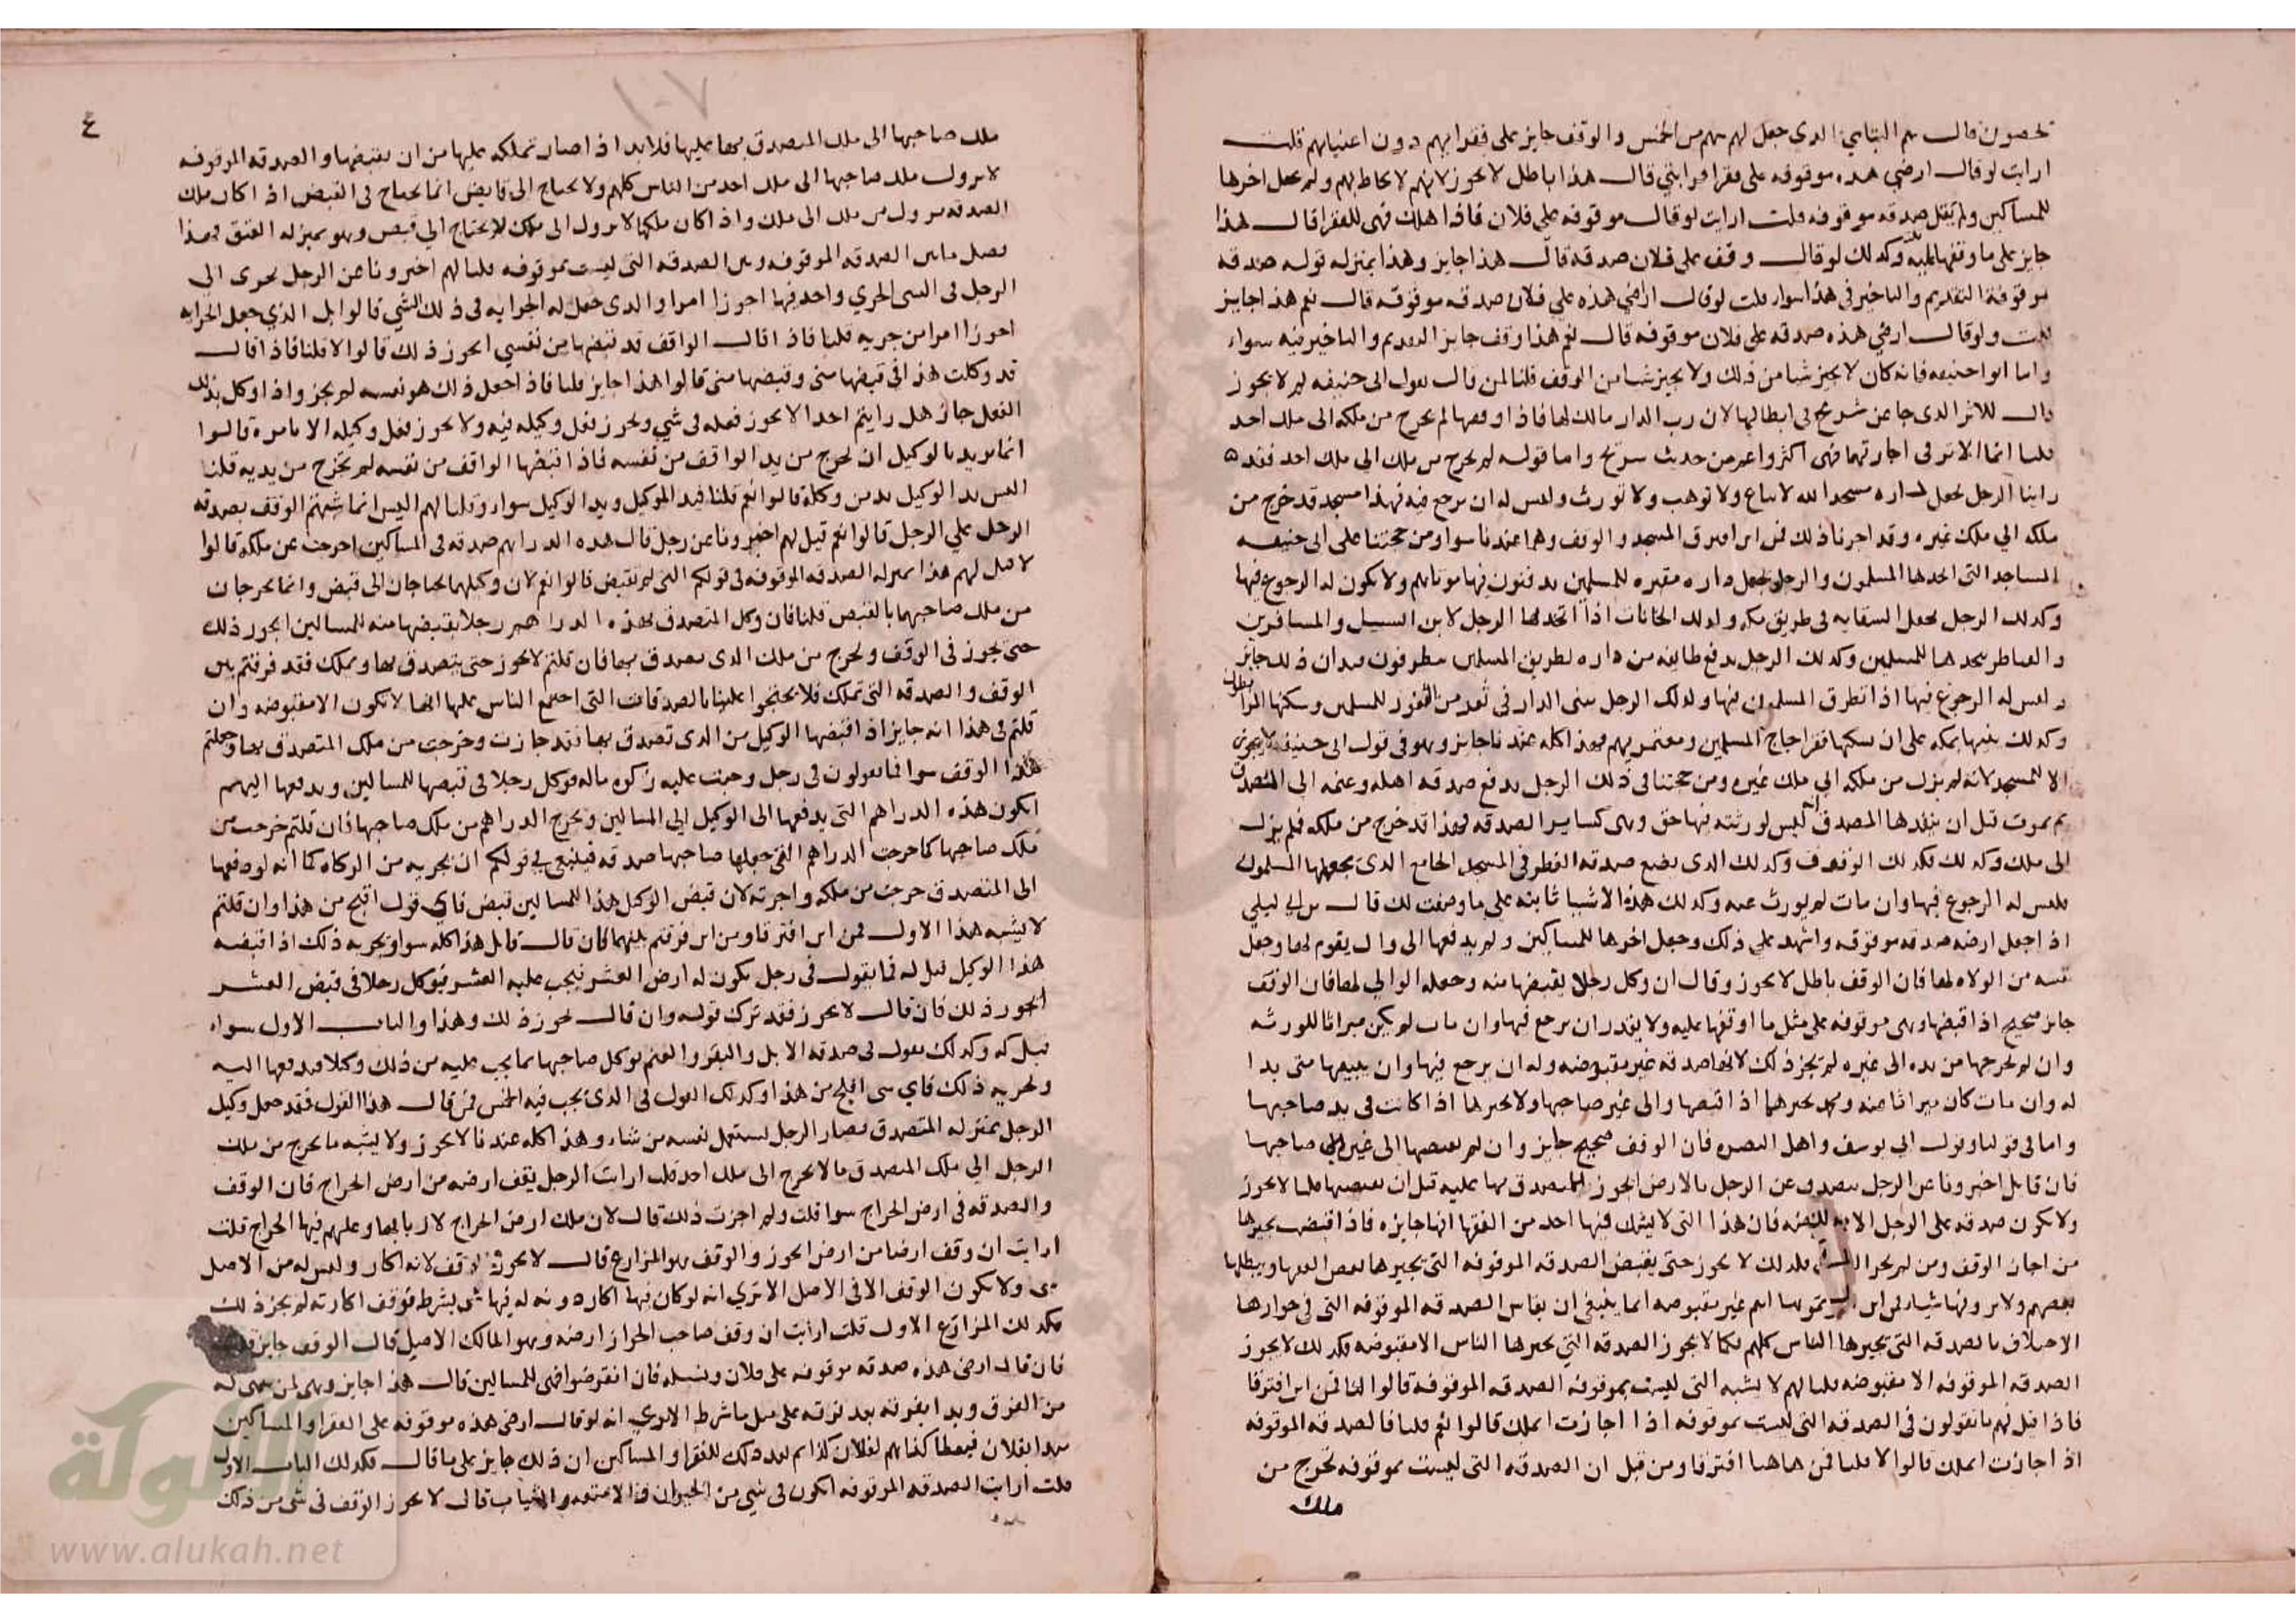 يحصون قال هم اليتامى الذي جعل لهم سهم من الخمس والوقف جايز على فقرايهم دون اغنيايهم قلت
ارايت لو قال ارضي هذه موقوفه على فقرا قرابتي قال هذا باطل لا يجوز لانهم لا يحاط بهم ولم يجعل اخرها
للمساكين ولم يقل صدقه موقوفه قلت ارايت لو قال موقوفه على فلان فاذا هلك فهى للفقرا قال هذا
جايز على ما وقفها عليه وكذلك لو قال وقف على فلان صدقة قال هذا جايز وهذا بمنزله قوله صدقه
موقوفة التقديم والتاخير في هذا سوا قلت لو قال ارضي هذه على فلان صدقه موقوفه قال نعم هذا جايز
قلت ولو قال ارضي هذه صدقه على فلان موقوفه قال نعم هذا وقف جايز التقديم والتاخير فيه سواء
واما ابو حنيفه فانه كان لا يجيز شيا من ذلك ولا يجيز شيا من الوقف قلنا لمن قال بقول ابي حنيفه لم لا يجوز
قال للاثر الذي جا عن شريح في ابطالها لان رب الدار مالك لها فاذا اوقفها لم تخرج من ملكه الى ملك احد
قلنا انما الاثر في اجازتها فهى اكثر واعم من حديث شريح واما قوله لم يخرج من ملك الى ملك احد فقد
راينا الرجل يجعل داره مسجدا لله لا يباع ولا توهب ولا تورث وليس له ان يرجع فيه فهذا مسجد قد خرج من
ملكه الي ملك غيره وقد اجزنا ذلك فمن اين افترق المسجد والوقف وهما عندنا سوا ومن حجتنا على ابي حنيفه
المساجد التي اتخذها المسلمون والرجل يجعل داره مقبره للمسلمين يدفنون فيها موتاهم ولا يكون له الرجوع فيها
وكذلك الرجل يجعل السقايه في طريق مكه وكذلك الخانات اذا اتخذها الرجل لابن السبيل والمسافرين
والقناطر يتخذها للمسلمين وكذلك الرجل يدفع طايفه من داره لطريق المسلمين يتطرقون فيه ان ذلك جايز
وليس له الرجوع فيها اذا تطرق المسلمون فيها وكذلك الرجل يبنى الدار في ثغر من الثغور للمسلمين وسكنها المرابطون
وكذلك يبنيها بمكه على ان يسكنها فقرا حجاج المسلمين ومعتمريهم فهذا كله عندنا جايز وهو في قول ابي حنيفه لا يجوز
الا المسجد لانه لم يزل من ملكه الي ملك غيره ومن حجتنا في ذلك الرجل يدفع صدقه ابله وغنمه الى المصدق
ثم يموت قبل ان ينفذها المصدق انه ليس لورثته فيها حق وهى كساير الصدقه فهذا قد خرج من ملكه فلم يزل
الى ملك وكذلك فكذلك الوقوف وكذلك الذي يضع صدقه الفطر في المسجد الجامع الذي يجعلها المسلمون
فليس له الرجوع فيها وان مات لم يورث عنه وكذلك هذه الاشيا ثابته على ما وصفت لك قال بن ابي ليلى
اذا جعل ارضه صدقه موقوفه واشهد على ذلك وجعل اخرها للمساكين ولم يدفعها الى وال يقوم لها وجعل
نفسه من الولاه لها فان الوقف باطل لا يجوز وقال ان وكل رجلا يقبضها منه وجعله الوالي لها فان الوقف
جايز صحيح اذا قبضها وهى موقوفه على مثل ما اوقفها عليه ولا يقدر ان يرجع فيها وان مات لم يكن ميراثا للورثه
وان لم يخرجها من يده الى غيره لم يجز ذلك لانها صدقه غير مقبوضه وله ان يرجع فيها وان يبيعها متى بدا
له وان مات كان ميراثا عنه ومحمد يجيزها اذا قبضها والى غير صاحبها ولا يجيزها اذا كانت في يد صاحبها
واما في قولنا وقول ابي يوسف واهل البصره فان الوقف صحيح جايز وان لم يقبضها الى غير صاحبها
فان قايل اخبرونا عن الرجل يتصدق عن الرجل بالارض ايجوز للمتصدق بها عليه قبل ان يقبضها قلنا لا يجوز
ولا تكون صدقه على الرجل الا بقبضه فان هذا التي لا يشك فيها احد من الفقها انها جايزه فاذا قبضت يجيزها
من اجاز الوقف ومن لم يجز فكذلك لا يجوز حتى يقبض الصدقه الموقوفه التي يجيزها بعض الفقها ويبطلها
بعضهم ولا يرونها شيا انما ينبغي ان يقاس الصدقه الموقوفه التي في جوازها
الاختلاف بالصدقه التي يجيزها الناس كلهم فكما لا يجوز الصدقه التي يجيزها الناس الا مقبوضه فكذلك لا يجوز
الصدقه الموقوفه الا مقبوضه قلنا لهم لا يشبه التي ليست بموقوفه الصدقه الموقوفة قالوا لنا فمن اين افترقا
فاذا قيل لهم ما تقولون في الصدقه التي ليست بموقوفه اذا اجازت اتملك قالوا نعم قلنا فالصدقه الموقوفه
اذا جازت اتملك قالوا لا قلنا فمن هاهنا افترقا ومن قبل ان الصدقه التي ليست بموقوفه تخرج من
ملك
٤
١٠٧
ملك صاحبها الى ملك المتصدق بها عليها فلا بد اذا صار تملكه عليها من ان يقبضها والصدقه الموقوفه
لا يزول ملك صاحبها الى ملك احد من الناس كلهم ولا يحتاج الى قابض انما يحتاج في القبض اذا كان ملك
الصدقه يزول من ملك الى ملك واذا كان ملكها لا يزول الى ملك لا يحتاج الي قبض وهو بمنزله العتق فهذا
فصل ما بين الصدقه الموقوفه وبين الصدقه التي ليست بموقوفه قلنا لهم اخبرونا عن الرجل يجرى الى
الرجل في الشي الجري واحد فيها اجوز امرا والذي جعل له الجرايه في ذلك الشي قالوا بل الذي جعل الجرايه
اجوز امرا من جريه قلنا فاذا قال الواقف قد قبضها من نفسي ايجوز ذلك قالوا لا قلنا فاذا قال
قد وكلت هذا في قبضها منى وقبضها منى قالوا هذا جايز قلنا فاذا جعل ذلك هو نفسه لم يجز واذا وكل بذلك
الفعل جاز هل رايتم احدا لا يجوز فعله في شي ويجوز فعل وكيله فيه ولا يجوز فعل وكيله الا بامره قالوا
انما يريد بالوكيل ان يخرج من يد الواقف من نفسه فاذا قبضها الواقف من نفسه لم تخرج من يديه قلنا
اليس يد الوكيل يد من وكله قالوا نعم قلنا فيد الموكيل ويد الوكيل سواء وقلنا لهم اليس انما شبهتم الوقف بصدقه
الرجل علي الرجل قالوا نعم قيل لهم اخبرونا عن رجل قال هذه الدراهم صدقه في المساكين اخرجت عن ملكه قالوا
لا قيل لهم هذا بمنزله الصدقه الموقوفه في قولكم التي لم تقبض قالوا نعم لان وكلهما يحتاجان الى قبض وانما يخرجان
من ملك صاحبهما بالقبض قلنا فان وكل المتصدق بهذه الدراهم رجلا يقبضها منه للمساكين ايجوز ذلك
حتى يجوز في الوقف ويخرج من ملك الذي تصدق بها فان قلتم لا يجوز حتى يتصدق بها ويملك فقد فرقتم بين
الوقف والصدقه التي تملك فلا تحتجوا علينا بالصدقات التي اجتمع الناس عليها انها لا تكون الا مقبوضه وان
قلتم في هذا انه جايز اذا قبضها الوكيل من الذي تصدق بها فقد جازت وخرجت من ملك المتصدق بها وجعلتم
هذا الوقف سوا فما تقولون في رجل وجبت عليه زكوه ماله فوكل رجلا في قبضها للمساكين ويدفعها اليهم
ايكون هذه الدراهم التي يدفعها الى الوكيل الي المساكين ويخرج الدراهم من ملك صاحبها فان قلتم خرجت من
ملك صاحبها كما خرجت الدراهم التي جعلها صاحبها صدقه فينبغي في قولكم ان يجزيه من الزكاه كما انه لو دفعها
الى المتصدق خرجت من ملكه واجزته لان قبض الوكيل هذا للمساكين قبض فاي قول اقبح من هذا وان قلتم
لا يشبه هذا الاول فمن اين افترقا ومن اين فرقتم بينهما فان قال قايل هذا كله سوا ويجزيه ذلك اذا قبضه
هذا الوكيل قيل له فما يقول في رجل تكون له ارض العشر فيجب عليه العشر فيوكل رجلا في قبض العشر
ايجوز ذلك فان قال لا يجوز فقد ترك قوله وان قال يجوز ذلك وهذا والباب الاول سواء
قيل له وكذلك يقول في صدقه الابل والبقر والغنم يوكل صاحبها بما يجب عليه من ذلك وكيلا ويدفعها اليه
ويجزيه ذلك فاي شي اقبح من هذا وكذلك القول في الذي يجب فيه الخمس فمن قال هذا القول فقد جعل وكيل
الرجل بمنزله المتصدق فصار الرجل يستعمل لنفسه من شاء وهذا كله عندنا لا يجوز ولا يشبه ما يخرج من ملك
الرجل الي ملك المتصدق ما لا يخرج الى ملك احد قلت ارايت الرجل يقف ارضه من ارض الخراج فان الوقف
والصدقه في ارض الخراج سوا قلت ولم اجزت ذلك قال لان ملك ارض الخراج لاربابها وعليهم فيها الخراج قلت
ارايت ان وقف ارضا من ارض الحوز والوقف هو المزارع قال لا يجوز وقف لانه اكار وليس له من الاصل
شى ولا يكون الوقف الا في الاصل الا ترى انه لو كان فيها اكاره ونه له فيها شى بشرط فوقف اكارته لم يجز ذلك
فكذلك المزارع الاول قلت ارايت ان وقف صاحب الحراز ارضه وهو المالك الاصيل قال الوقف جايز قلت
فان قال ارضى هذه صدقه موقوفه على فلان ونسله فان انقرضوا فهى للمساكين قال هذا جايز وهى لمن سمى له
انه لو قال ارضى هذه موقوفه على الفقرا والمساكين
يبدا بفلان فيعطا كذا ثم لفلان كذا ثم بعد ذلك للفقرا والمساكين ان ذلك جايز على ما قال فكذلك الباب الاول
قلت ارايت الصدقه الموقوفه اتكون في شي من الحيوان والامتعه والثياب قال لا يجوز الوقف في شى من ذلك
الألوكة
www.alukah.net